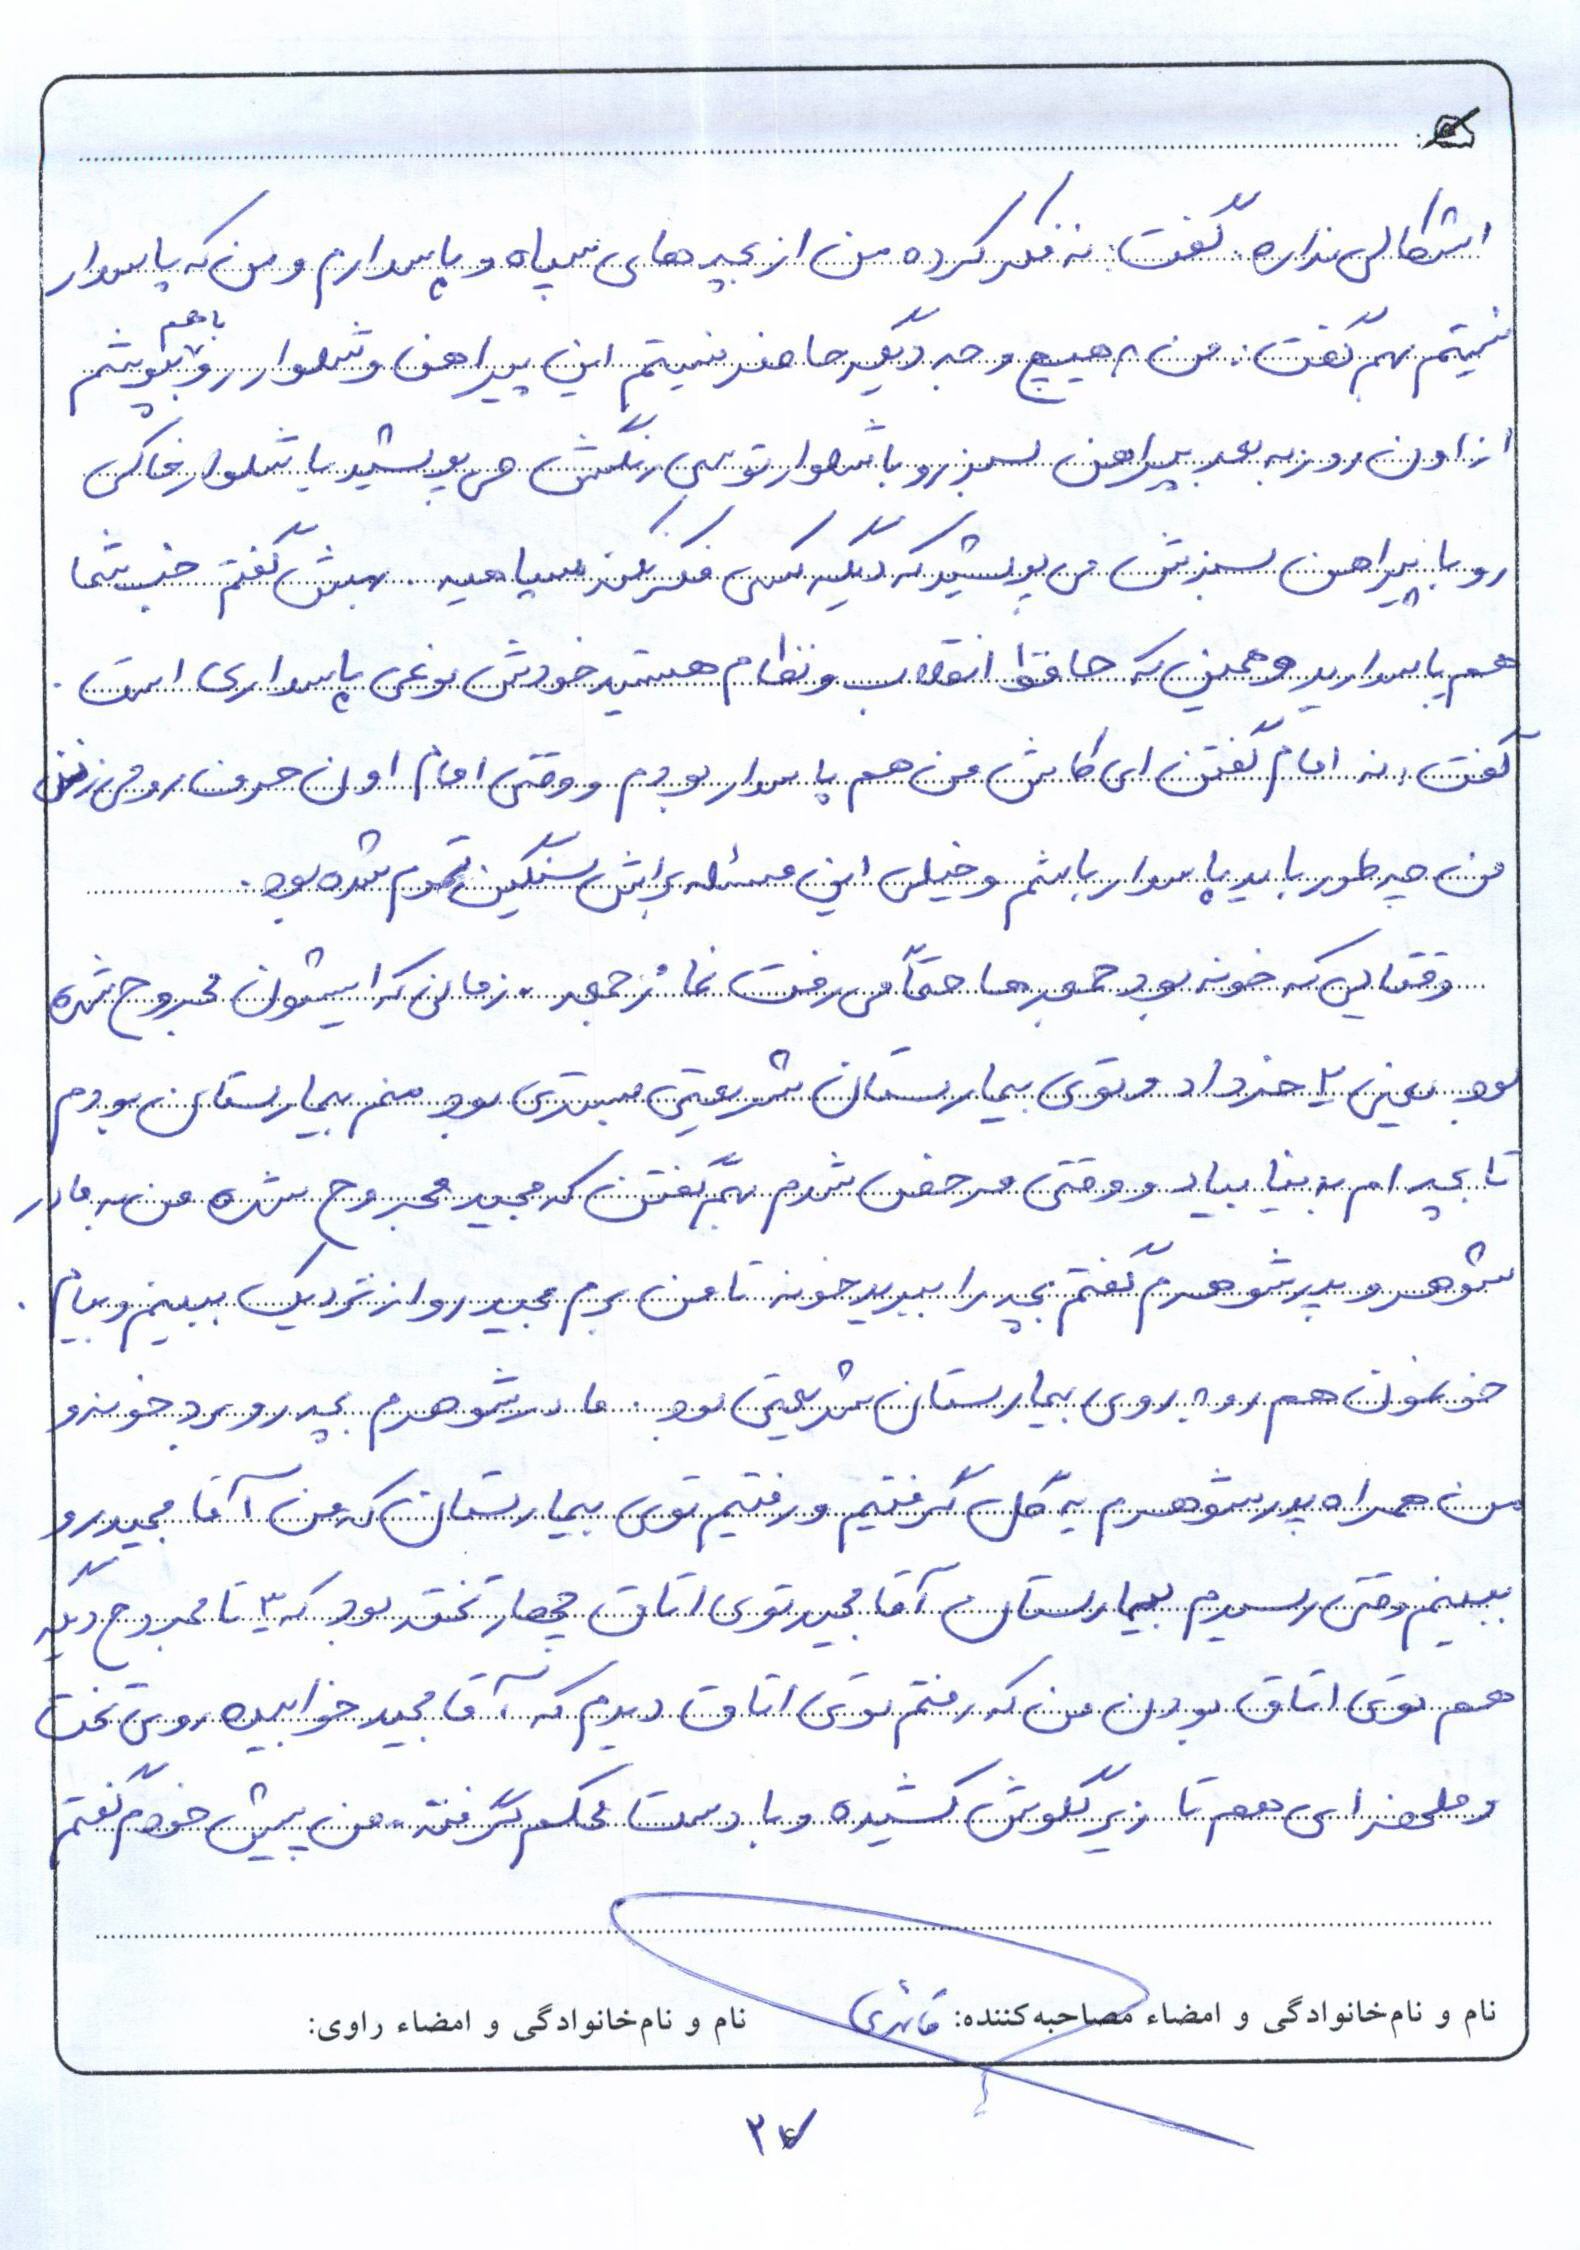 اشکالی نداره. گفت: نه فکر کرده من از بچه های سپاه و پاسدارم و من که پاسدار
نیستم بهم گفت: من به هیچ وجه دیگه حاضر نیستم این پیراهن و شلوار رو باهم بپوشم
از اون روز به بعد پیراهن سبز رو با شلوار توسی رنگش می پوشید یا شلوار خاکی
رو با پیراهن سبزش می پوشید که دیگه کسی فکر نکنه سپاهیه. بهش گفتم خب شما
هم پاسدارید و همین که حافظ انقلاب و نظام هستید خودش نوعی پاسداری است.
گفت: نه امام گفتن ای کاش من هم پاسدار بودم و وقتی امام اون حرف رو می زنن
من چه طور باید پاسدار باشم و خیلی این مسئله براش سنگین تموم شده بود.
وقتایی که خونه بود جمعه ها حتماً می رفت نماز جمعه. زمانی که ایشون مجروح شده
بود یعنی ۲ خرداد و توی بیمارستان شریعتی بستری بود منم بیمارستان بودم
تا بچه ام به دنیا بیاد و وقتی مرخص شدم بهم گفتن که مجید مجروح شده من به مادر
شوهر و پدر شوهرم گفتم بچه را ببرید خونه تا من برم مجید رو از نزدیک ببینم و بیام.
خونمون هم رو به روی بیمارستان شریعتی بود. مادر شوهرم بچه رو برد خونه و
من همراه پدر شوهرم یه گل گرفتیم و رفتیم توی بیمارستان که من آقا مجید رو
ببینم وقتی رسیدم بیمارستان آقا مجید توی اتاق چهار تخته بود که ۳ تا مجروح دیگه
هم توی اتاق بودن من که رفتم توی اتاق دیدم که آقا مجید خوابیده روی تخت
و ملحفه ای هم تا زیر گلوش کشیده و با دست محکم گرفته. من پیش خودم گفتم
نام و نام‌خانوادگی و امضاء مصاحبه‌کننده:
نام و نام‌خانوادگی و امضاء راوی: